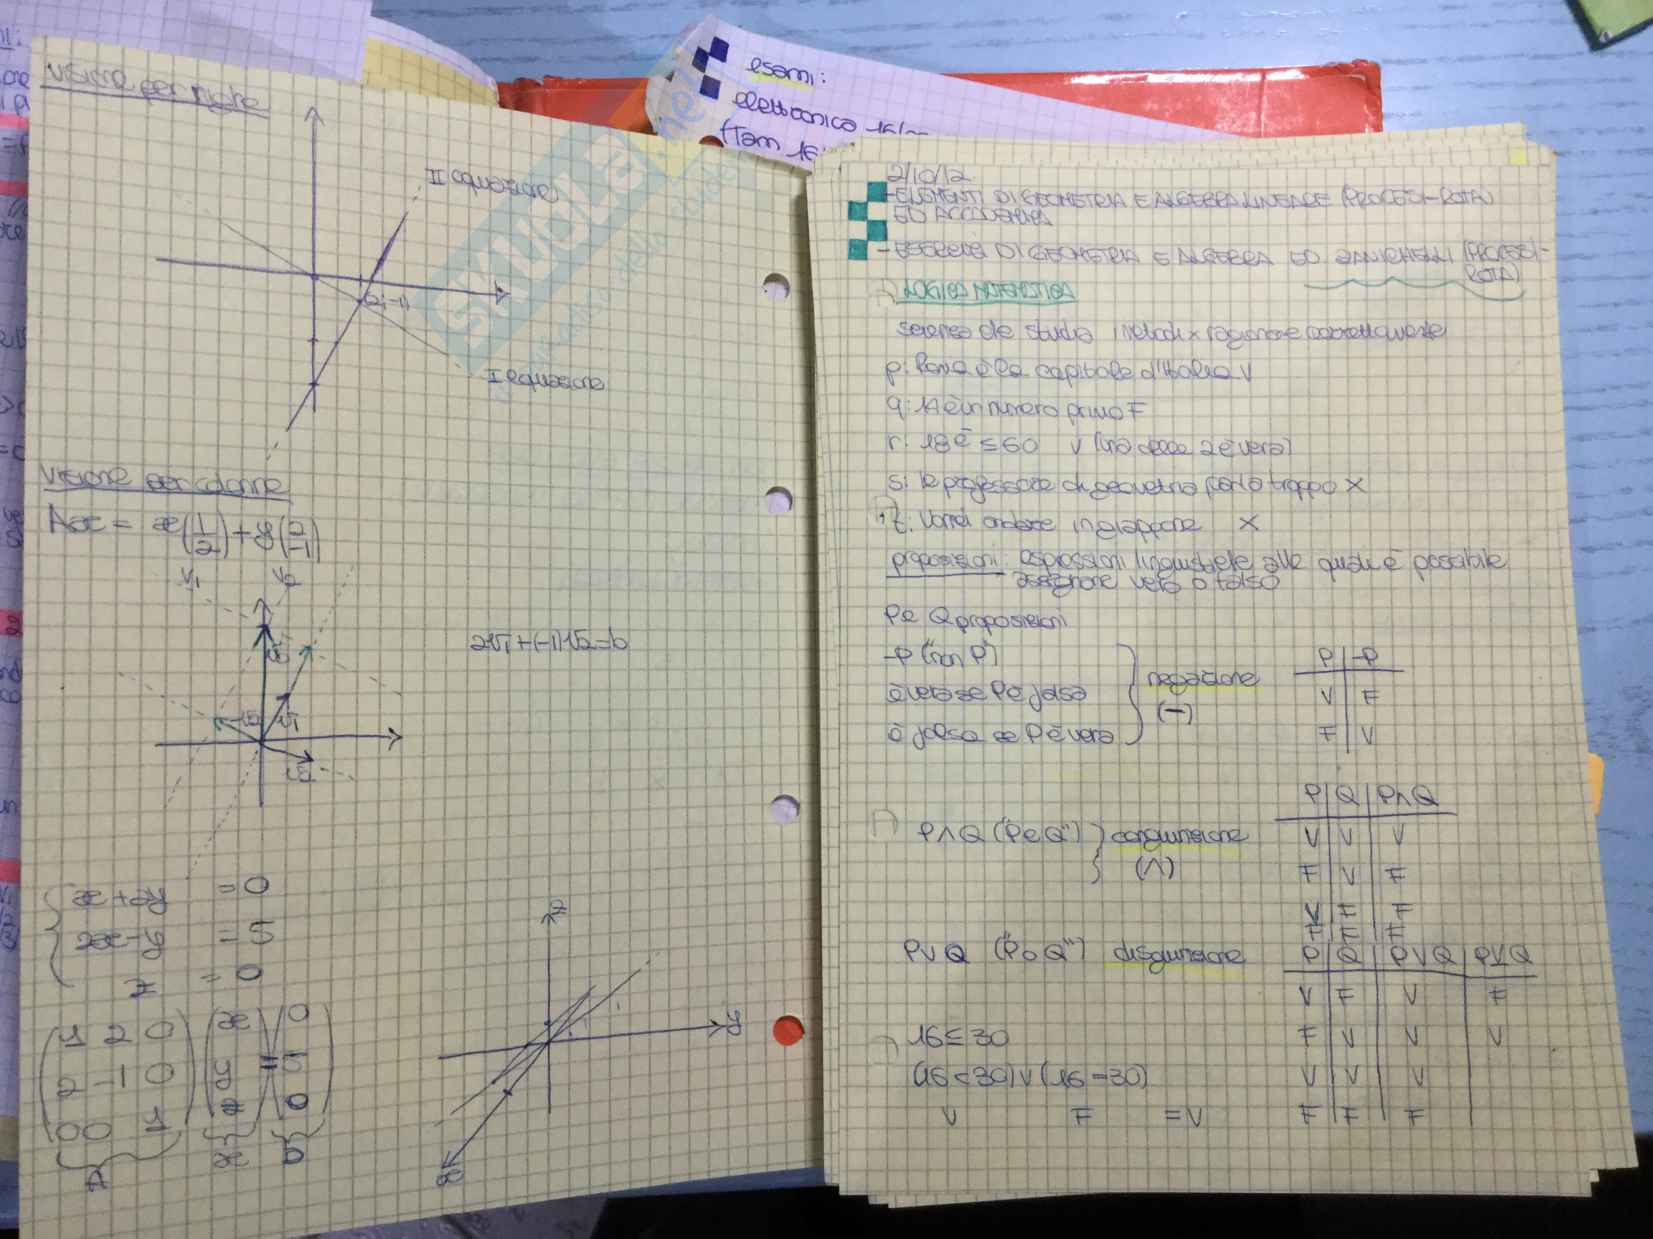 esami:
elettronica 16/
(Tom 16:
SKUOLA.net
Visione per righe
II equazione
(2,-1)
I equazione
Visione per colonne
Ax = x(1 2) + y(2 -1)
V1 V2
2v1+(-1)v2=b
v1
v2
{ x+2y = 0
2x-y = 5
z = 0
(1 2 0) (x) (0)
(2 -1 0) (y) = (5)
(0 0 1) (z) (0)
A x b
z
y
x
2/10/12
-ELEMENTI DI GEOMETRIA E ALGEBRA LINEARE (PROCESI-ROTA)
ED ACCADEMICA
-ESERCIZI DI GEOMETRIA E ALGEBRA ED ZANICHELLI (PROCESI-
ROTA)
LOGICA MATEMATICA
scienza che studia i metodi x ragionare correttamente
p: Roma è la capitale d'Italia V
q: 14 è un numero primo F
r: 18 è ≤ 60 V (una delle 2 è vera)
s: la professore di geometria parla troppo X
t: Vorrei andare in giappone X
proposizioni: espressioni linguistiche alle quali è possibile
assegnare vero o falso
P e Q proposizioni
-P ("non P")
è vera se P è falsa
è falsa se P è vera
negazione
(-)
P -P
V F
F V
P∧Q ("P e Q") congiunzione
(∧)
P Q P∧Q
V V V
F V F
V F F
F F F
P∨Q ("P o Q") disgiunzione
P Q P∨Q P⊻Q
V F V F
F V V V
V V V
F F F
16≤30
(16<30)∨(16=30)
V F =V